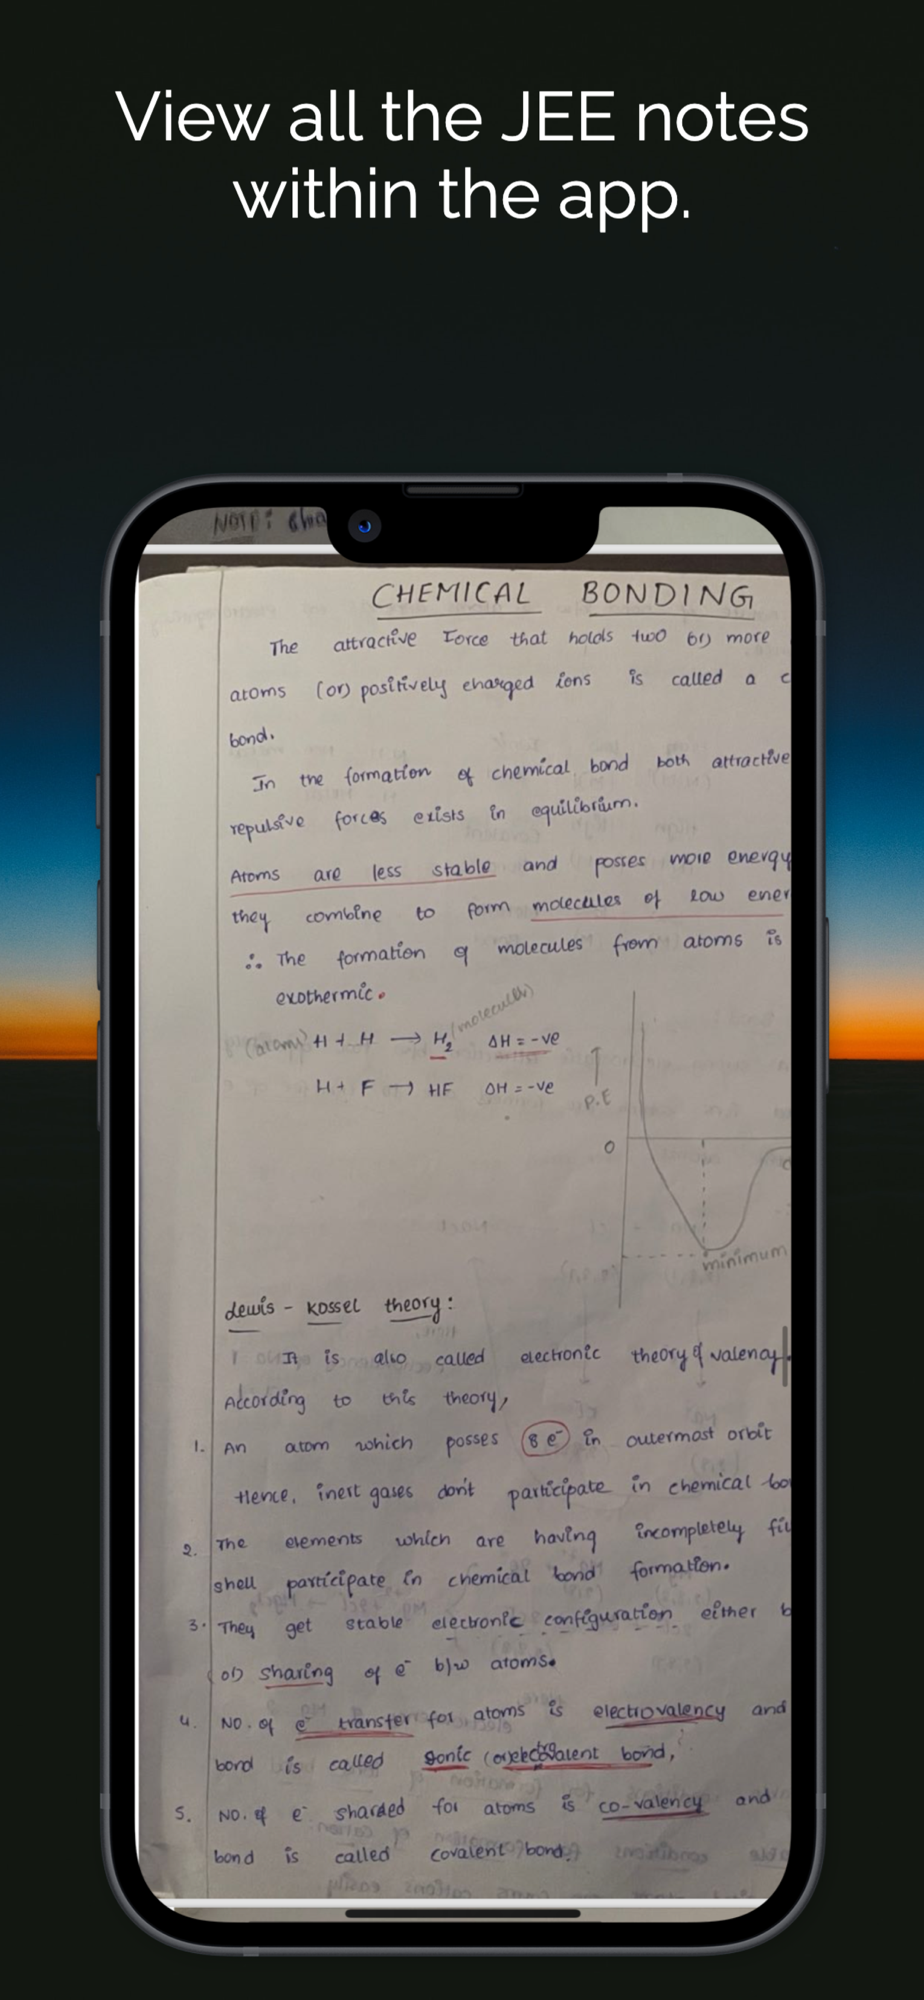 View all the JEE notes
within the app.
NOTE: cha
CHEMICAL BONDING
The attractive Force that holds two (or) more
atoms (or) positively charged ions is called a c
bond.
In the formation of chemical bond both attractive
repulsive forces exists in equilibrium.
Atoms are less stable and posses more energy
they combine to form molecules of low ener
∴ The formation of molecules from atoms is
exothermic.
(atoms) H + H → H₂ (molecules) ΔH = -ve
H + F → HF ΔH = -ve
P.E
0
minimum
Lewis - Kossel theory:
It is also called electronic theory of valency
According to this theory,
1. An atom which posses 8 e⁻ in outermost orbit
Hence, inert gases don't participate in chemical bo
2. The elements which are having incompletely fil
shell participate in chemical bond formation.
3. They get stable electronic configuration either b
(or) sharing of e⁻ b/w atoms.
4. NO. of e⁻ transfer for atoms is electrovalency and
bond is called Ionic (or) electrovalent bond,
5. NO. of e⁻ sharded for atoms is co-valency and
bond is called covalent bond.